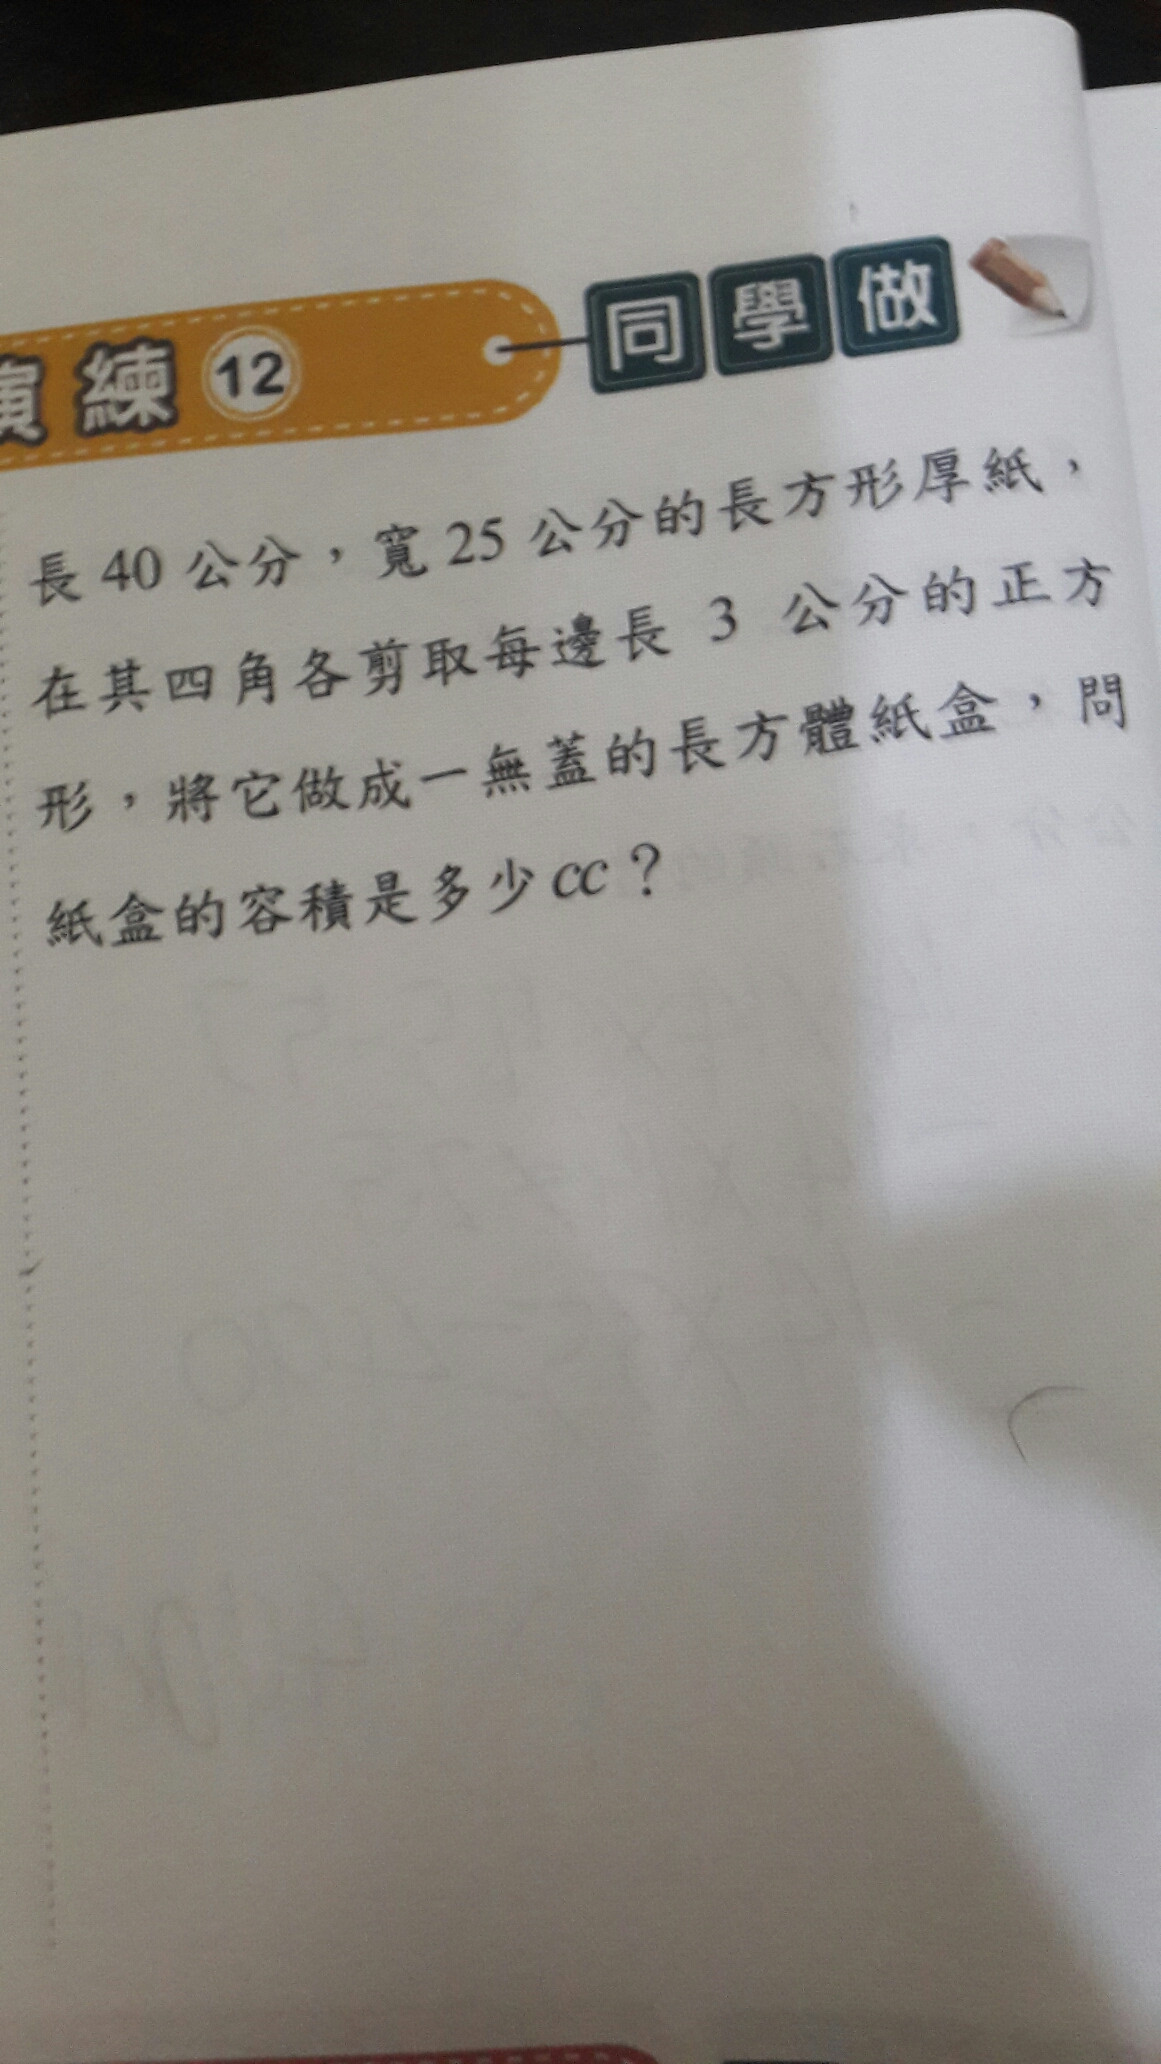 演練 12 同學做
長 40 公分，寬 25 公分的長方形厚紙，
在其四角各剪取每邊長 3 公分的正方
形，將它做成一無蓋的長方體紙盒，問
紙盒的容積是多少cc？